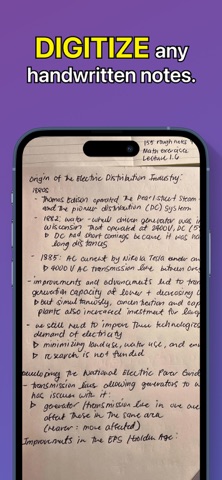 DIGITIZE any
handwritten notes.
155 rough notes
Math exercise
Lecture 1.6
Origin of the Electric Distribution Industry:
1880s
- Thomas Edison operated the Pearl Street Steam
and the pioneer distribution (DC) system
- 1882: water-wheel driven generator was in
Wisconsin that operated at 2400V, DC
DC had short comings because it was
long distances
- 1885: AC current by Nikola Tesla under
4000V AC transmission line between
- improvements and advancements led to
generation capacity of lower + decreasing
but simultaneously, concentration and cap
plants also increased investment for
- we still need to improve these technologies
demand of electricity
minimizing land use, water use, and
research is not funded
Developing the National Electric Power Grid
- transmission lines allowing generators to
has issues with it:
generator transmission line in one are
affect those in the same area
(nearer: more affected)
Improvements in the EPS Holden Age: